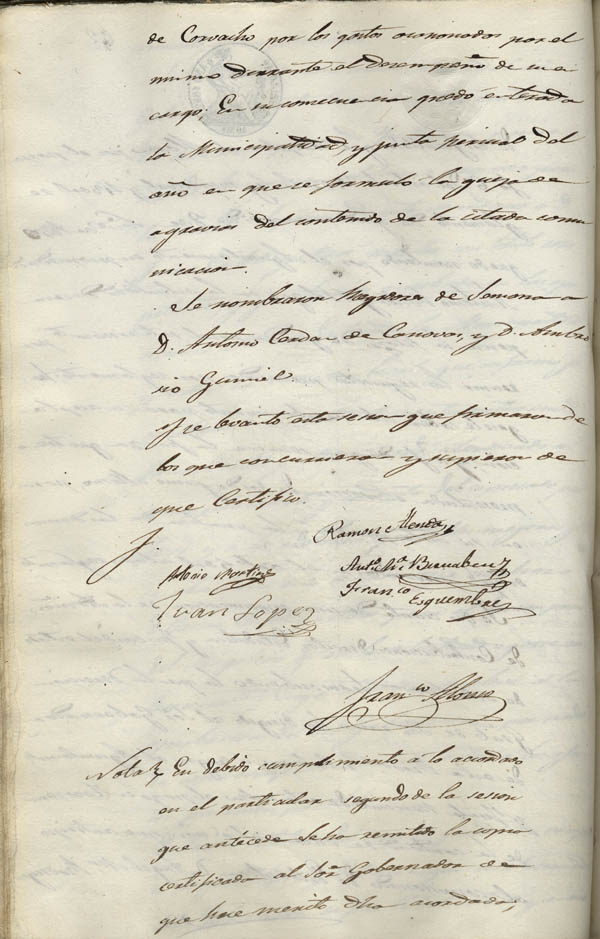 de Corvacho por los gastos ocasionados por el
mismo durante el desempeño de su en
cargo; En su consecuencia quedó enterada
la Municipalidad, y junta pericial del
año en que se formulo la queja de
agravios del contenido de la citada comu
nicacion.
Se nombraron Regidores de Semana a
D. Antonio Cerdan de Canovas, y D. Ambro
sio Gumiel.
Y se levanto esta sesion que firmaron de
los que concurrieron y supieron de
que Certifico.
Ramon
Antonio Martinez
Antº Mª Bernabeu
Juan Lopez
Franco
Esquembre
Franco Alonso
Nota En debido cumplimiento á lo acordado
en el particular segundo de la sesion
que antecede se ha remitido la copia
certificada al Sor Gobernador de
que hace merito dho acordado,